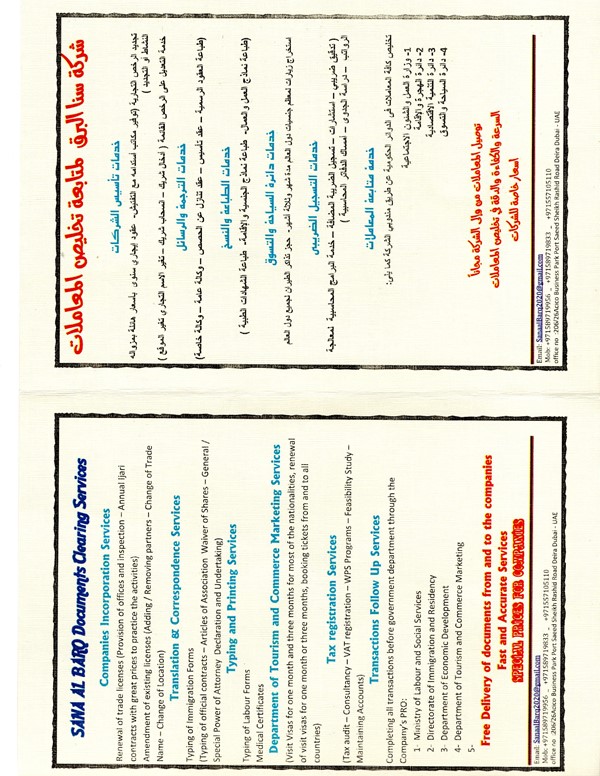 SANA AL BARQ Documents Clearing Services
Companies Incorporation Services
Renewal of trade licenses (Provision of offices and inspection – Annual Ijari
contracts with great prices to practice the activities)
Amendment of existing licenses (Adding / Removing partners – Change of Trade
Name – Change of Location)
Translation & Correspondence Services
Typing of Immigration Forms
(Typing of official contracts – Articles of Association Waiver of Shares – General /
Special Power of Attorney Declaration and Undertaking)
Typing and Printing Services
Typing of Labour Forms
Medical Certificates
Department of Tourism and Commerce Marketing Services
(Visit Visas for one month and three months for most of the nationalities, renewal
of visit visas for one month or three months, booking tickets from and to all
countries)
Tax registration Services
(Tax audit – Consultancy – VAT registration – WPS Programs – Feasibility Study –
Maintaining Accounts)
Transactions Follow Up Services
Completing all transactions before government department through the
Company's PRO:
1- Ministry of Labour and Social Services
2- Directorate of Immigration and Residency
3- Department of Economic Development
4- Department of Tourism and Commerce Marketing
5-
Free Delivery of documents from and to the companies
Fast and Accurate Services
SPECIAL PRICES FOR COMPANIES
Email: SanaalBarq2020@gmail.com
Mob: +971589719956 _ +971589719833 _ +971557105110
office no :206/26Acico Business Park Port Saeed Sheikh Rashid Road Deira Dubai - UAE
شركة سنا البرق لمتابعة تخليص المعاملات
خدمات تأسيس الشركات
تجديد الرخص التجارية (توفير مكاتب استدامه مع التفتيش- عقود ايجاري سنوى باسعار هائلة بمزواله
النشاط او التجديد )
خدمة التعديل على الرخص القائمة ( أدخال شريك – انسحاب شريك – تغير الاسم التجاري تغير الموقع )
خدمات الترجمة والرسائل
(طباعة العقود الرسمية – عقد تأسيس – عقد تنازل عن الحصص – وكالة عامة – وكالة خاصة)
خدمات الطباعة والنسخ
(طباعة نماذج العمل والعمال- طباعة نماذج الجنسية والإقامة- طباعة الشهادات الطبية )
خدمات دائرة السياحة والتسوق
استخراج زيارات لمعظم جنسيات دول العالم مدة شهر وثلاثة اشهر- حجز تذاكر الطيران لجميع دول العالم
خدمات التسجيل الضريبي
( تدقيق ضريبي – استشارات – تسجيل الضريبة المضافة – خدمة البرامج المحاسبية لمعالجة
الرواتب – دراسة الجدوى – امساك الدفاتر المحاسبية )
خدمة متابعة المعاملات
تخليص كافة المعاملات في الدوائر الحكومية عن طريق مندوبين الشركة كما تى:
1- وزارة العمل والشئون الاجتماعية
2- دائرة الهجرة والإقامة
3- دائرة التنمية الاقتصادية
4- دائرة السياحة والتسوق
توصيل المعاملات من والى الشركة مجانا
السرعة والكفاءة والدقة في تخليص المعاملات
اسعار خاصة للشركات
Email: SanaalBarq2020@gmail.com
Mob: +971589719956 _ +971589719833 _ +971557105110
office no :206/26Acico Business Park Port Saeed Sheikh Rashid Road Deira Dubai - UAE